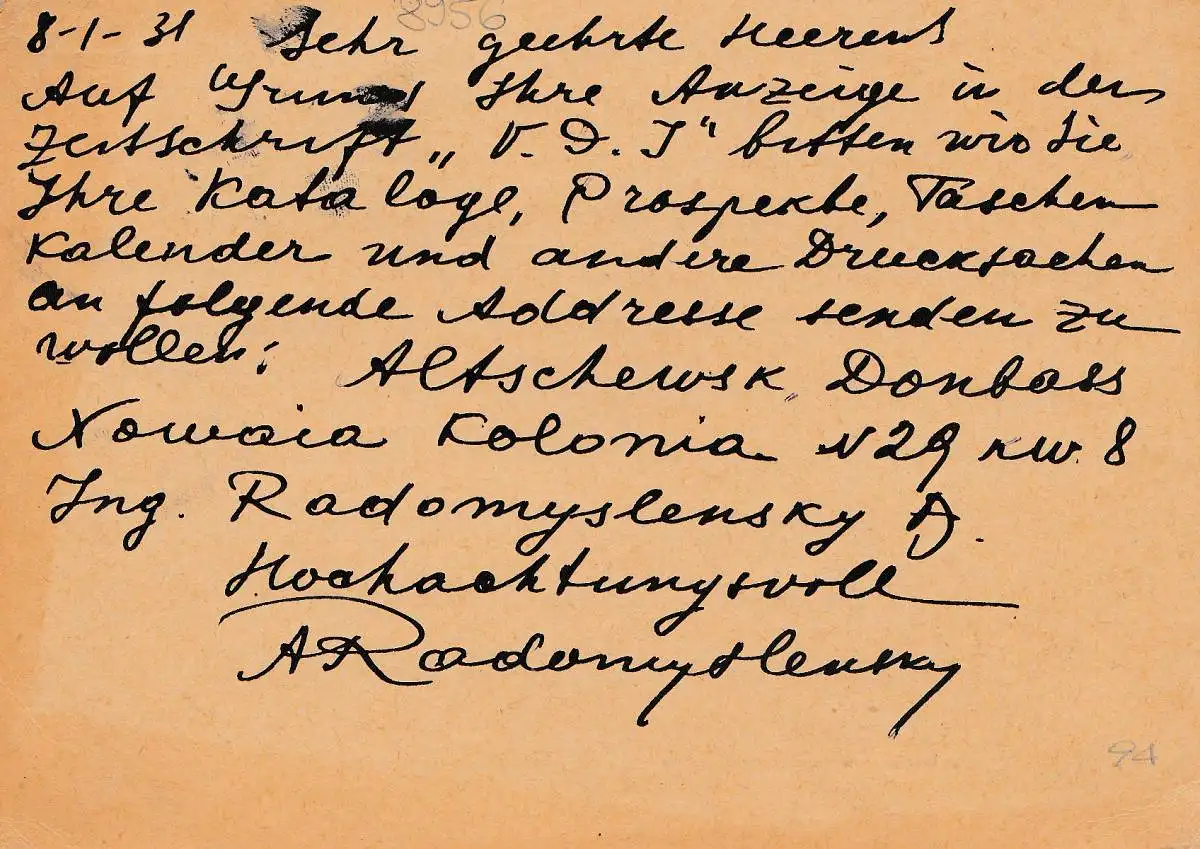 8956
8-1-31 Sehr geehrte Heeren!
Auf Grund Ihre Anzeige in der
Zeitschrift „V. D. I“ bitten wir Sie
Ihre Kataloge, Prospekte, Taschen
Kalender und andere Drucksachen
an folgende Addresse senden zu
wollen: Altschewsk Donbass
Nowaia Kolonia N 29 kw. 8
Ing. Radomyslensky A.
Hochachtungsvoll
ARadomyslensky
94